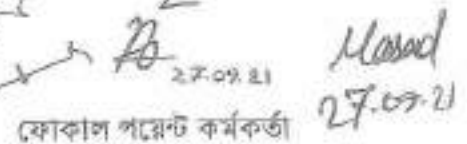 27.09.21
Masud
27.09.21
ফোকাল পয়েন্ট কর্মকর্তা